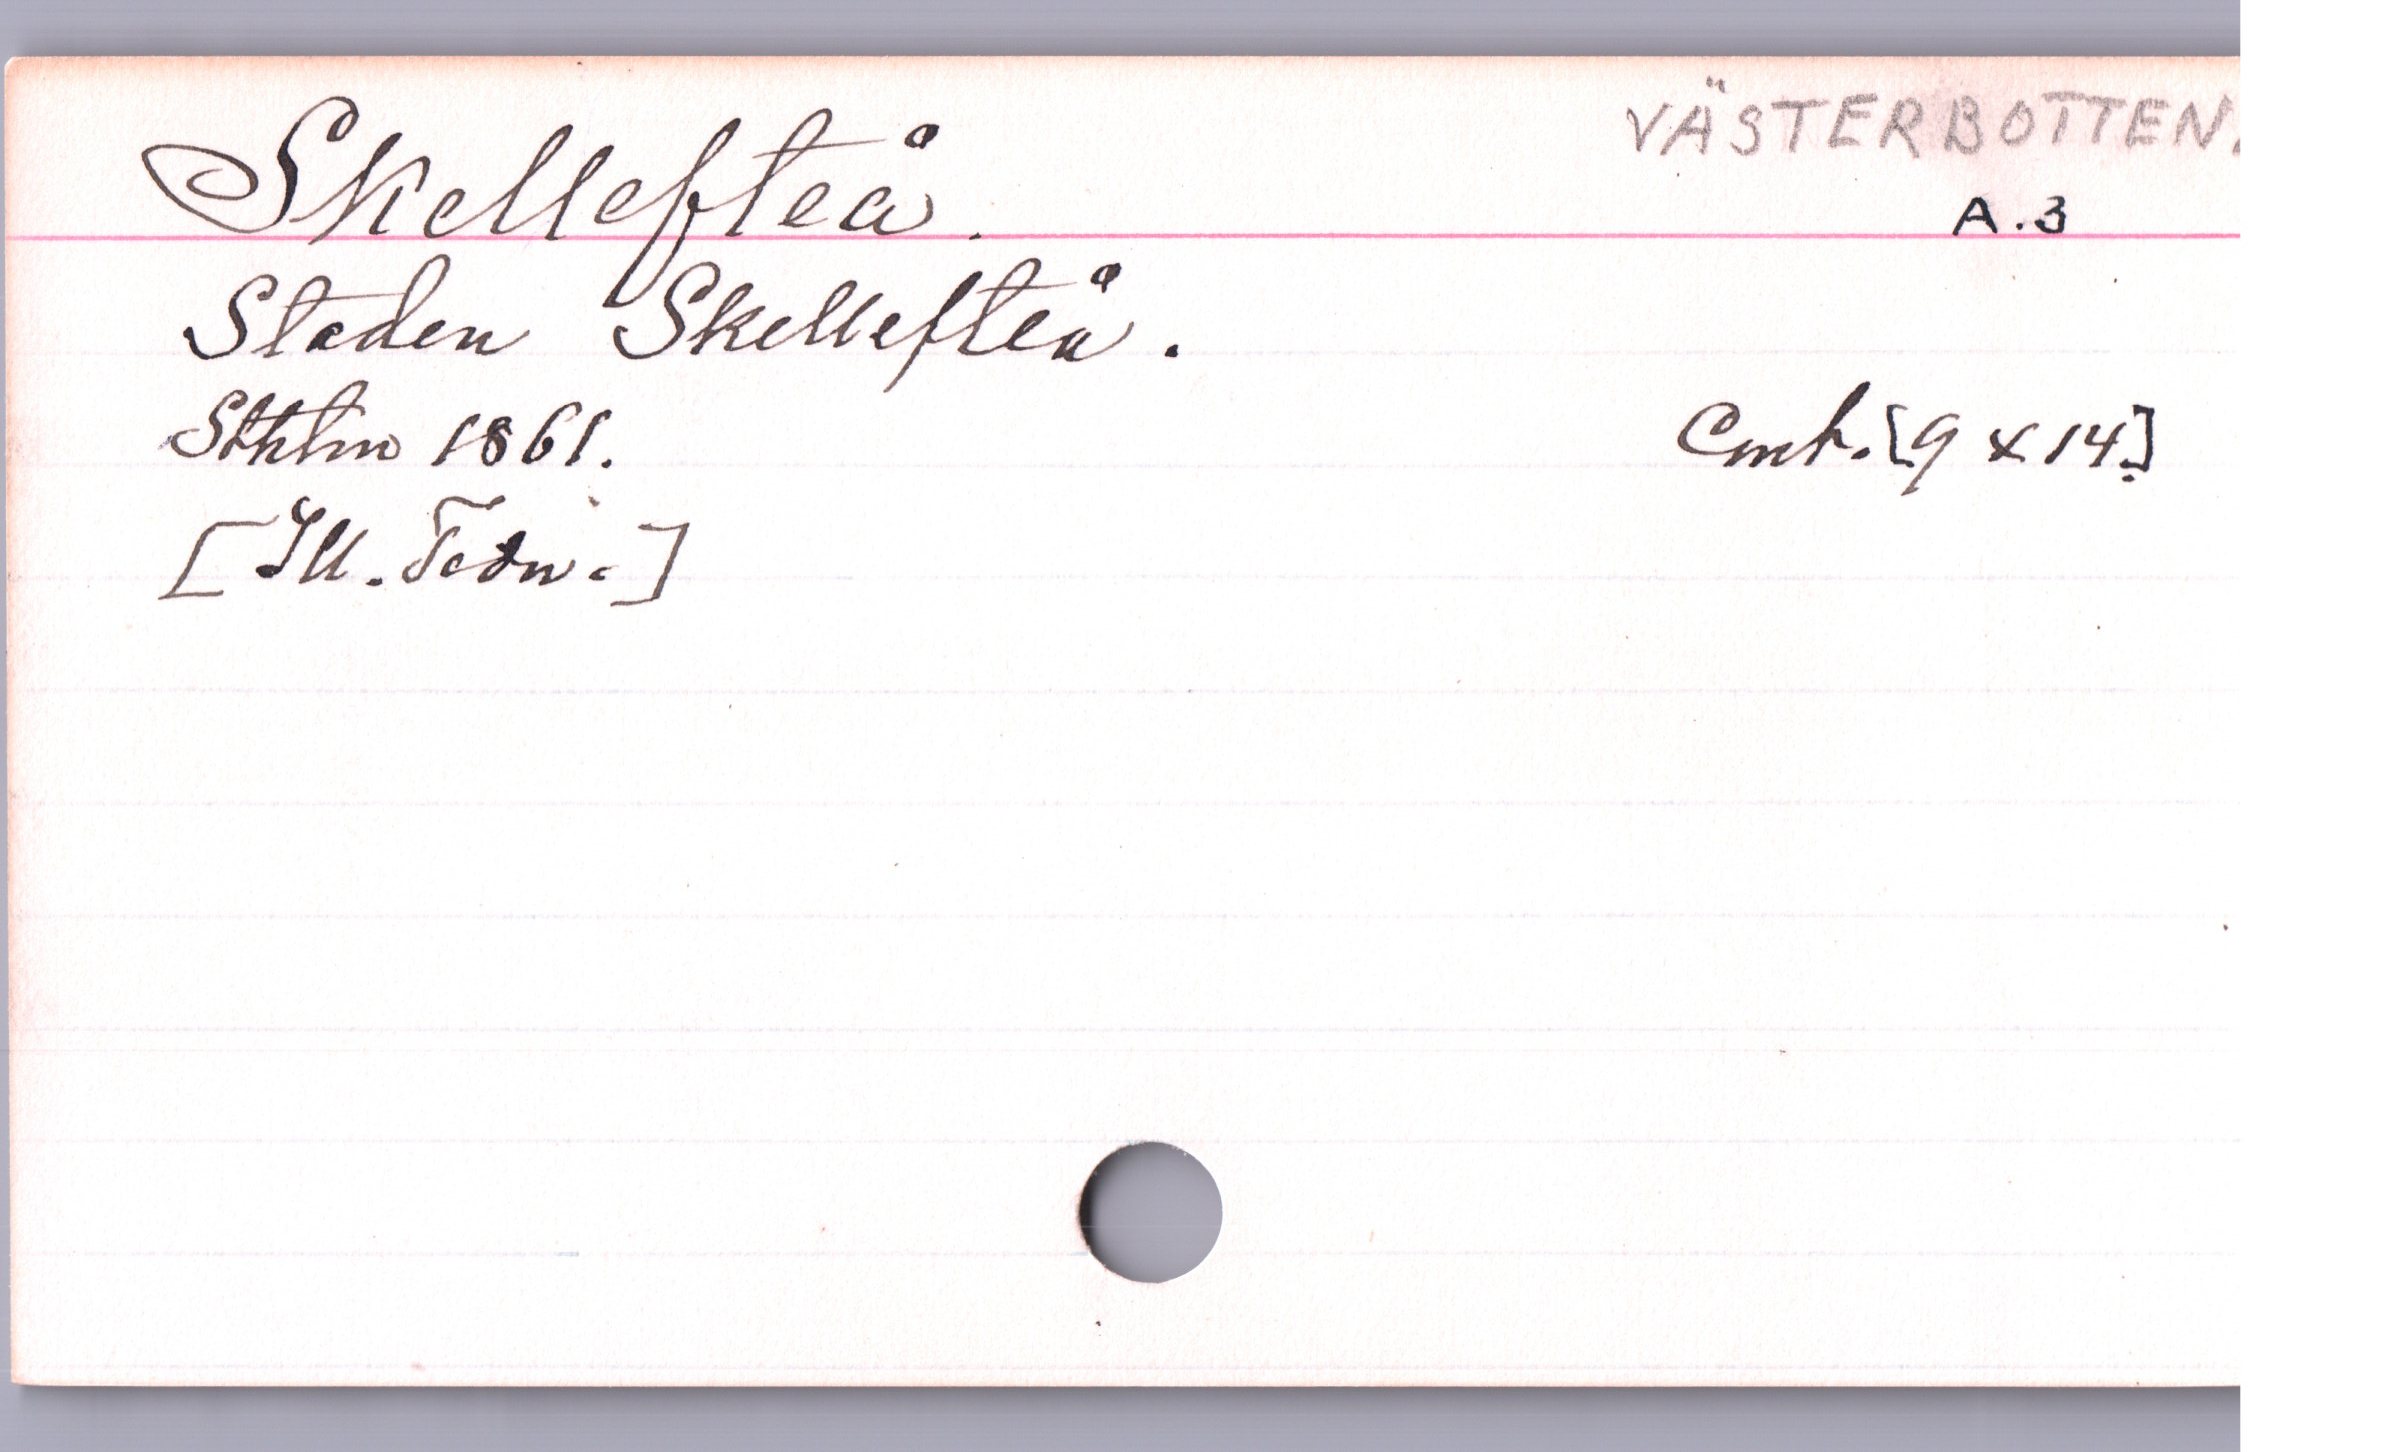 Skellefteå.
VÄSTERBOTTEN.
A.3
Staden Skellefteå.
Sthlm 1861.
Cmt. [9 x 14.]
[Ill. Tidn.]